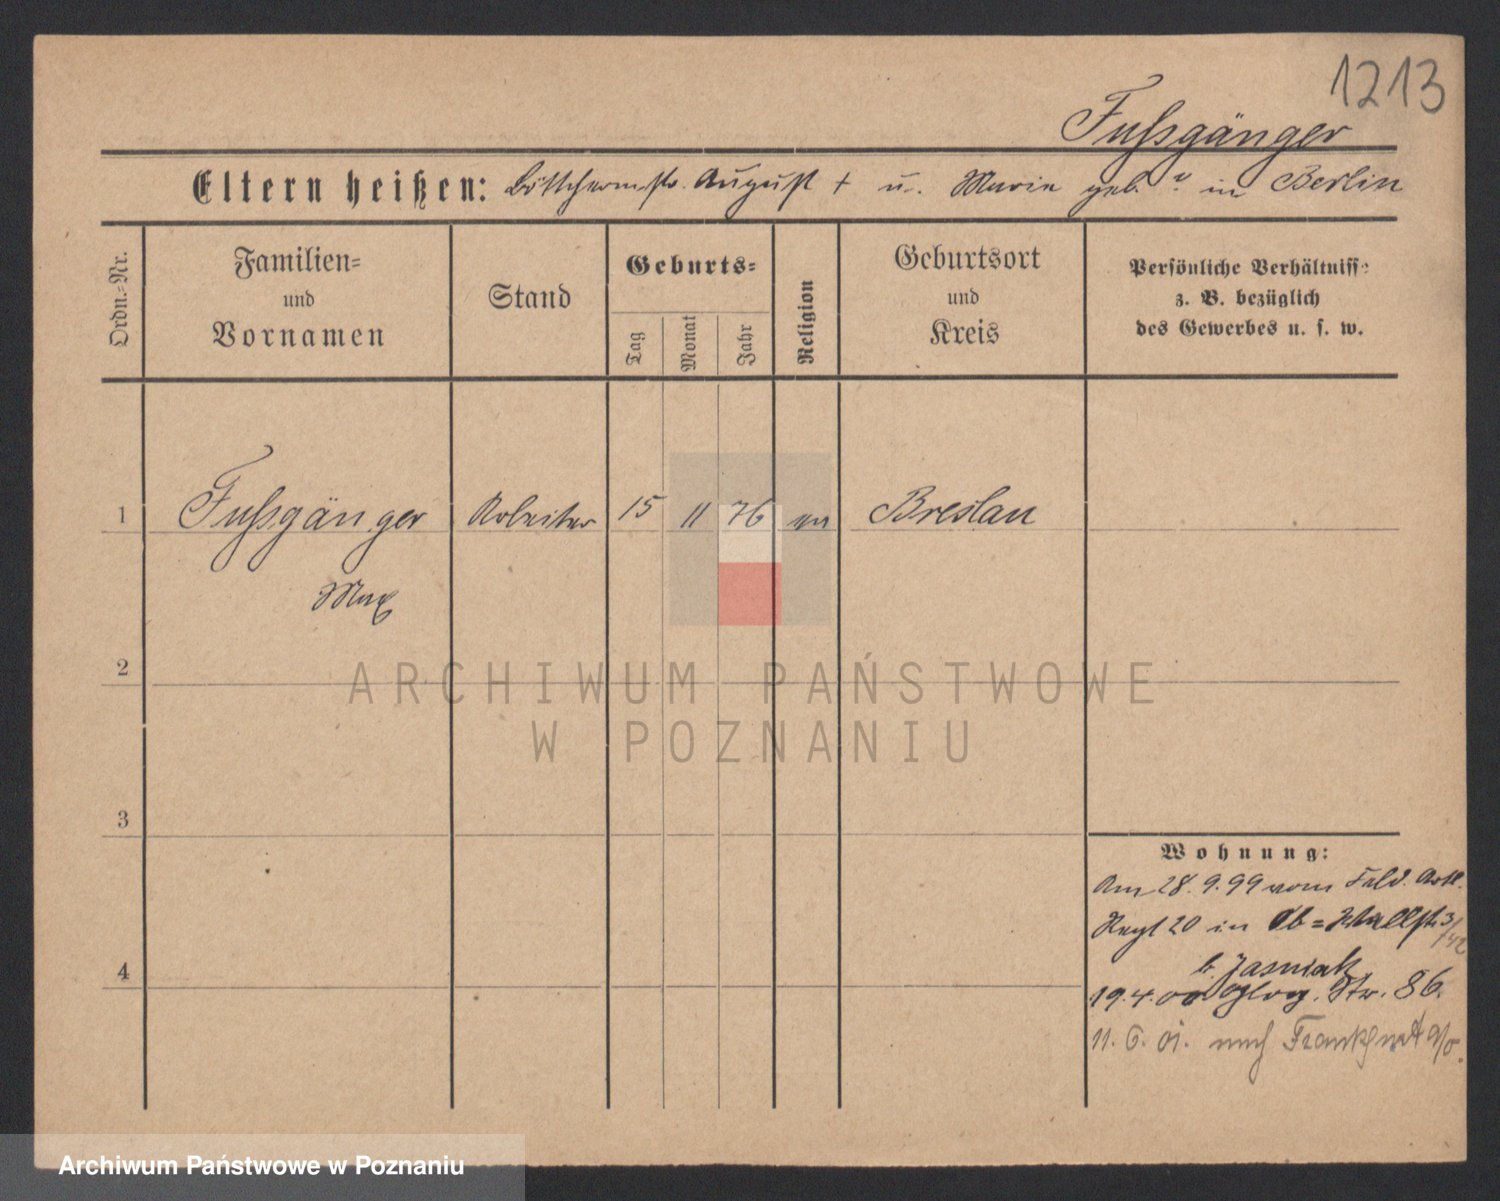 1213
Fußgänger
Eltern heißen: Böttchermstr. August † u. Marie geb. ? in Berlin
Ordn.-Nr.
Familien-
und
Vornamen
Stand
Geburts-
Tag
Monat
Jahr
Religion
Geburtsort
und
Kreis
Persönliche Verhältnisse
z. B. bezüglich
des Gewerbes u. s. w.
1 Fußgänger Arbeiter 15 11 76 ev Breslau
Max
2
ARCHIWUM PAŃSTWOWE
W POZNANIU
3
Wohnung:
Am 28.9.99 vom Feld. Artl.
Regt 20 in Ob= Wallstr. 3/
4
b. Jasniak
19.4.00 Glog. Str. 86.
11.6.01. nach Frankfurt a/o.
Archiwum Państwowe w Poznaniu